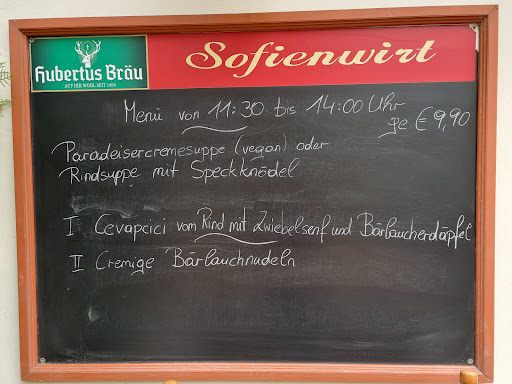 Hubertus Bräu
AUF IHR WOHL SEIT 1454
Sofienwirt
Menü von 11:30 bis 14:00 Uhr
ge € 9,90
Paradeisercremesuppe (vegan) oder
Rindsuppe mit Speckknödel
I Cevapcici vom Rind mit Zwiebelsenf und Bärlaucherdäpfel
II Cremige Bärlauchnudeln